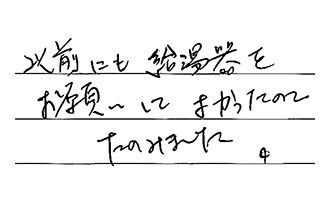 以前にも給湯器を
お願いして よかったので
たのみました。